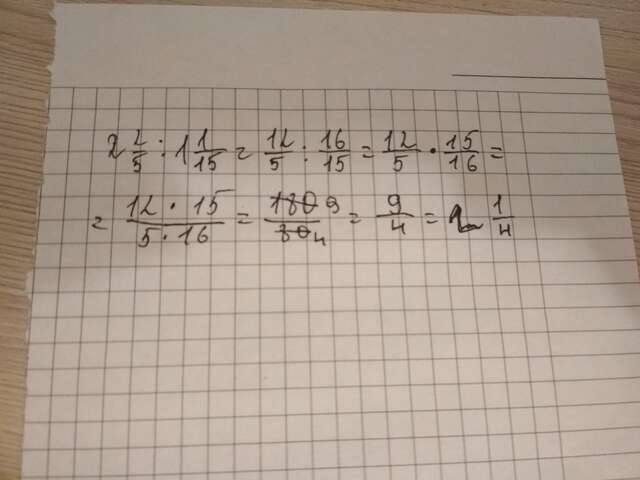 2 2/5 : 1 1/15 = 12/5 : 16/15 = 12/5 · 15/16 =
= 12 · 15/5 · 16 = 180 9/80 4 = 9/4 = 2 1/4